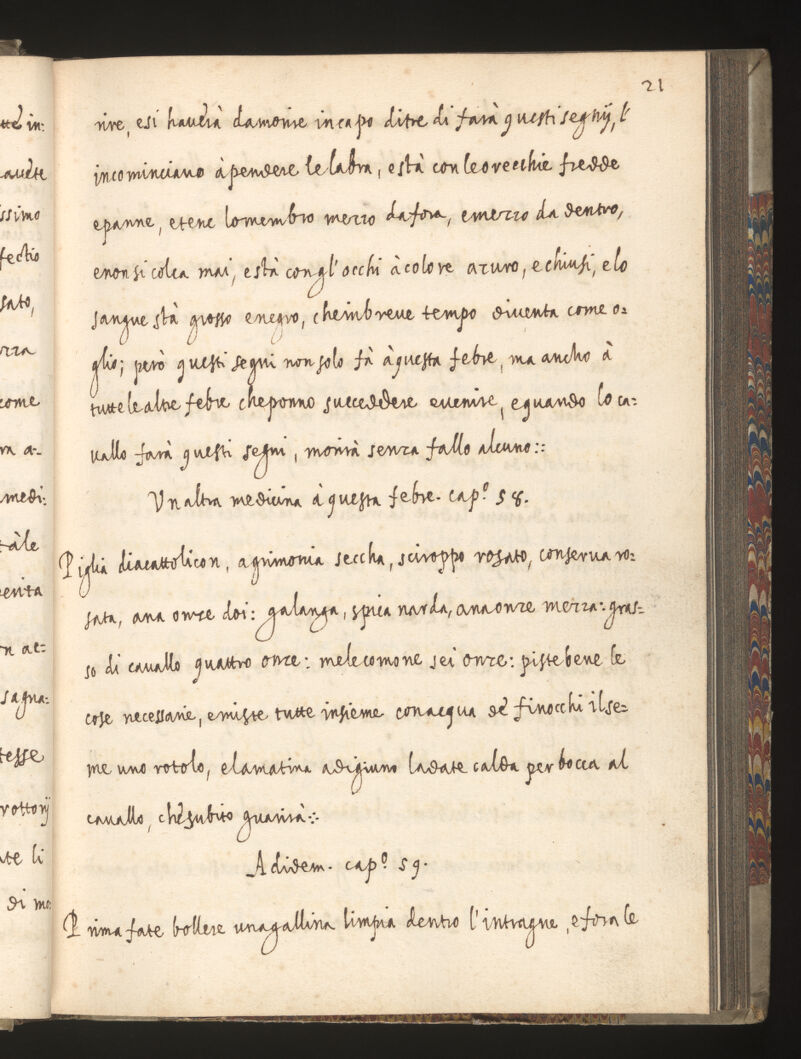 21
rire, e si haverà da morire in capo di tre di farà questi segnij, l'
incominciano à pendere le labra, e stà con le orecchie fredde
e panne, e tene lo membro mezzo da fora, e mezzo da dentro,
e non si colca mai, e stà con gl'occhi à colore azuro, e chiusi, e lo
sangue stà grosso e negro, che in breve tempo diventa come o-
glio; però questi segni non solo fà à questa febre, ma ancho à
tutte le altre febre che ponno succeddere e venire, e quando lo ca=
vallo farà questi segni, morirà senza fallo alcuno::
Un altra medicina à questa febre. cap.º 58.
Piglia diacattolicon, agrimonia seccha, sciroppo rosato, conserva ro=
sata, ana onze doi: galanga, spica narda, ana onze mezza: gras=
so di cavallo quattro onze: mele comone sei onze: piste bene le
cose necessarie, e miste tutte insieme con acqua dè finocchi il se=
me uno rotolo, e la matina a digiuno la date calda per bocca al
cavallo, chè subito guarirà::
Ad idem. cap.º 59.
Prima fate bollere una gallina limpia dentro l'intragne, e fora le
tte in:
avete
ssimo
fectio
sato,
zza
come
ra a-
medi:
tà le
venta
n ac=
sagna:
tesse
rottorij
ate li
di mo: